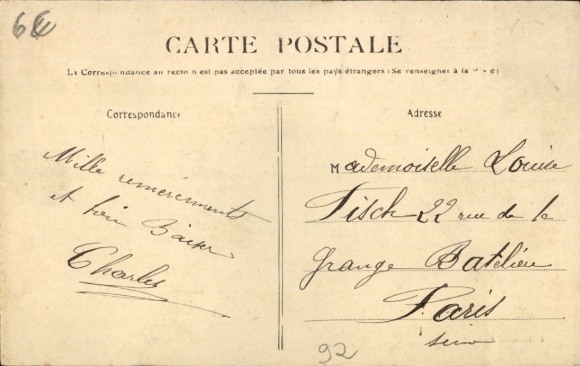 6€
CARTE POSTALE
La Correspondance au recto n'est pas acceptée par tous les pays étrangers (Se renseigner à la Poste)
Correspondance
Adresse
Mille remerciements
et Baiser
Charles
Mademoiselle Louise
Fisch 22 rue de la
Grange Batelière
Paris
Seine
92